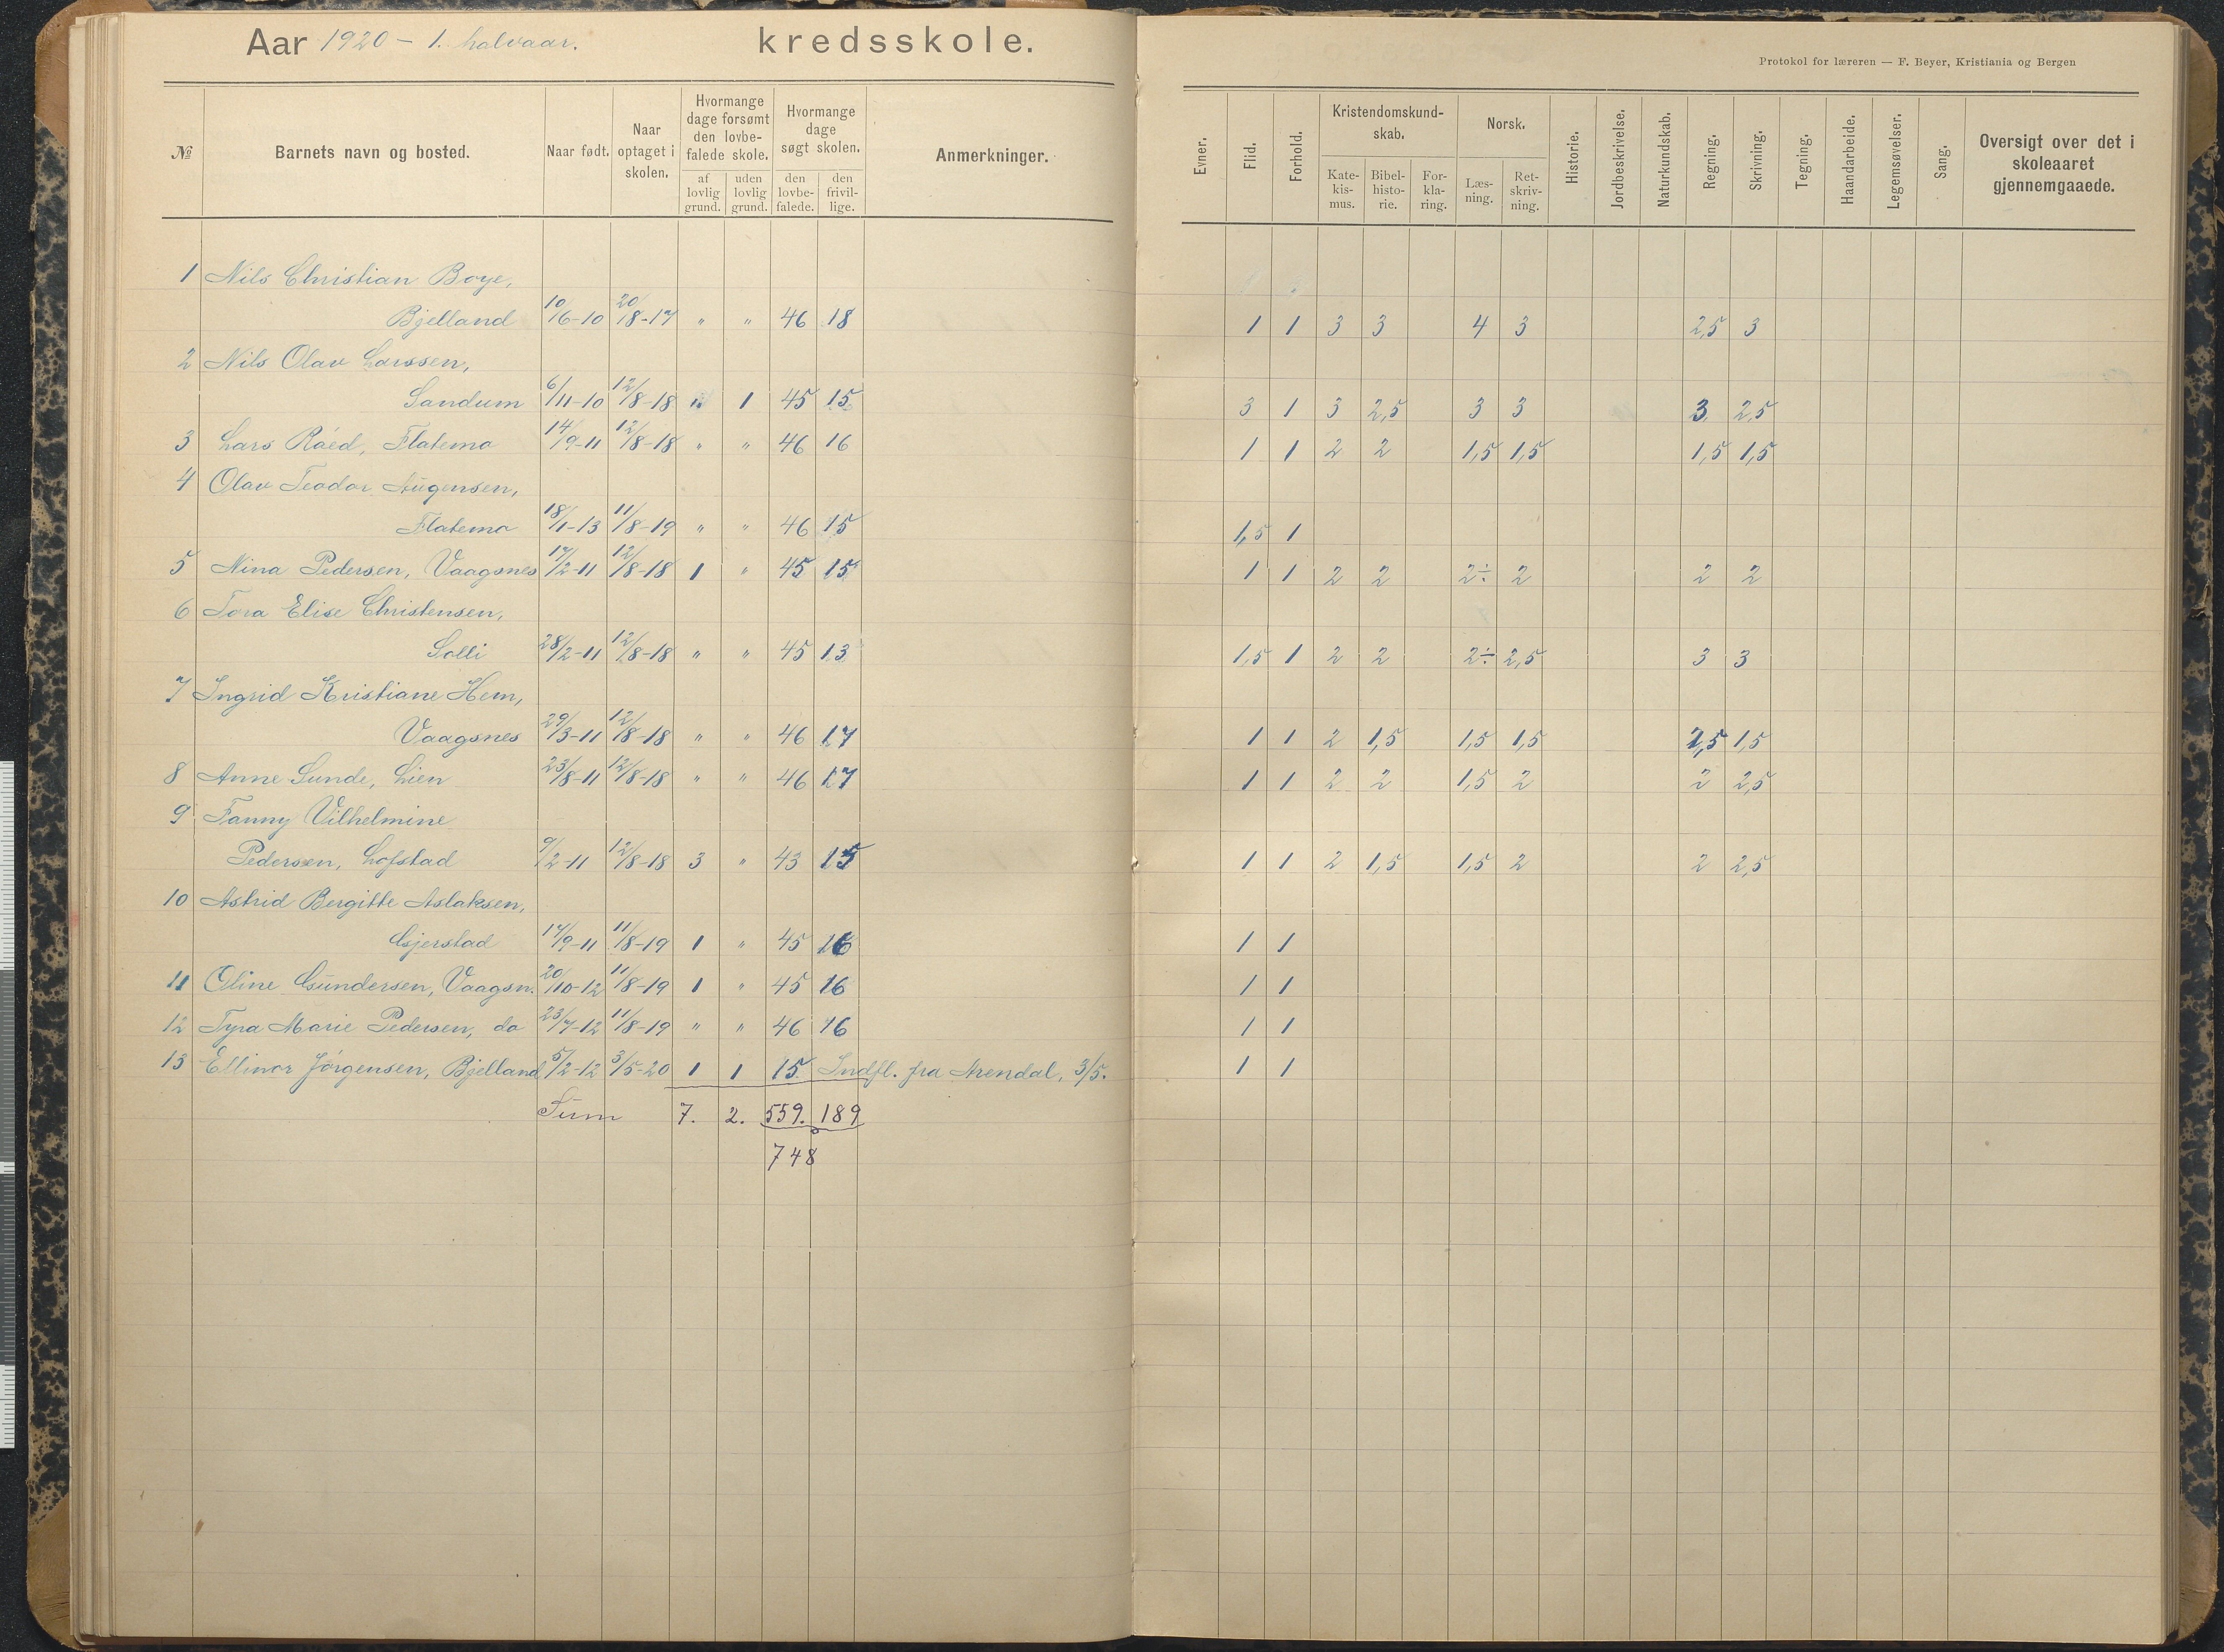 Aar 1920 - 1. halvaar. kredsskole.
Protokol for læreren — F. Beyer, Kristiania og Bergen
№ Barnets navn og bosted. Naar født. Naar optaget i skolen. Hvormange dage forsømt den lovbefalede skole. af lovlig grund. uden lovlig grund. Hvormange dage søgt skolen. den lovbefalede. den frivillige. Anmerkninger.
Evner. Flid. Forhold. Kristendomskundskab. Katekismus. Bibelhistorie. Forklaring. Norsk. Læsning. Retskrivning. Historie. Jordbeskrivelse. Naturkundskab. Regning. Skrivning. Tegning. Haandarbeide. Legemsøvelser. Sang. Oversigt over det i skoleaaret gjennemgaaede.
1 Nils Christian Boye,
Bjelland 10/6-10 20/8-17 " " 46 18 1 1 3 3 4 3 2,5 3
2 Nils Olav Larssen,
Sandum 6/11-10 12/8-18 " 1 45 15 3 1 3 2,5 3 3 3 2,5
3 Lars Råed, Flatemo 14/9-11 12/8-18 " " 46 16 1 1 2 2 1,5 1,5 1,5 1,5
4 Olav Teodor Augensen,
Flatemo 18/1-13 11/8-19 " " 46 15 1,5 1
5 Nina Pedersen, Vaagsnes 17/2-11 12/8-18 1 " 45 15 1 1 2 2 2÷ 2 2 2
6 Tora Elise Christensen,
Solli 28/2-11 12/8-18 " " 45 13 1,5 1 2 2 2÷ 2,5 3 3
7 Ingrid Kristiane Hem,
Vaagsnes 29/3-11 12/8-18 " " 46 17 1 1 2 1,5 1,5 1,5 1,5 1,5
8 Anne Sunde, Lien 23/8-11 12/8-18 " " 46 17 1 1 2 2 1,5 2 2 2,5
9 Fanny Vilhelmine
Pedersen, Lofstad 9/2-11 12/8-18 3 " 43 15 1 1 2 1,5 1,5 2 2 2,5
10 Astrid Bergitte Aslaksen,
Gjerstad 14/9-11 11/8-19 1 " 45 16 1 1
11 Oline Gundersen, Vaagsn. 20/10-12 11/8-19 1 " 45 16 1 1
12 Tyra Marie Pedersen, do 23/7-12 11/8-19 " " 46 16 1 1
13 Ellinor Jörgensen, Bjelland 5/2-12 3/5-20 1 1 15 Indfl. fra Arendal, 3/5. 1 1
Sum 7. 2. 559. 189
748